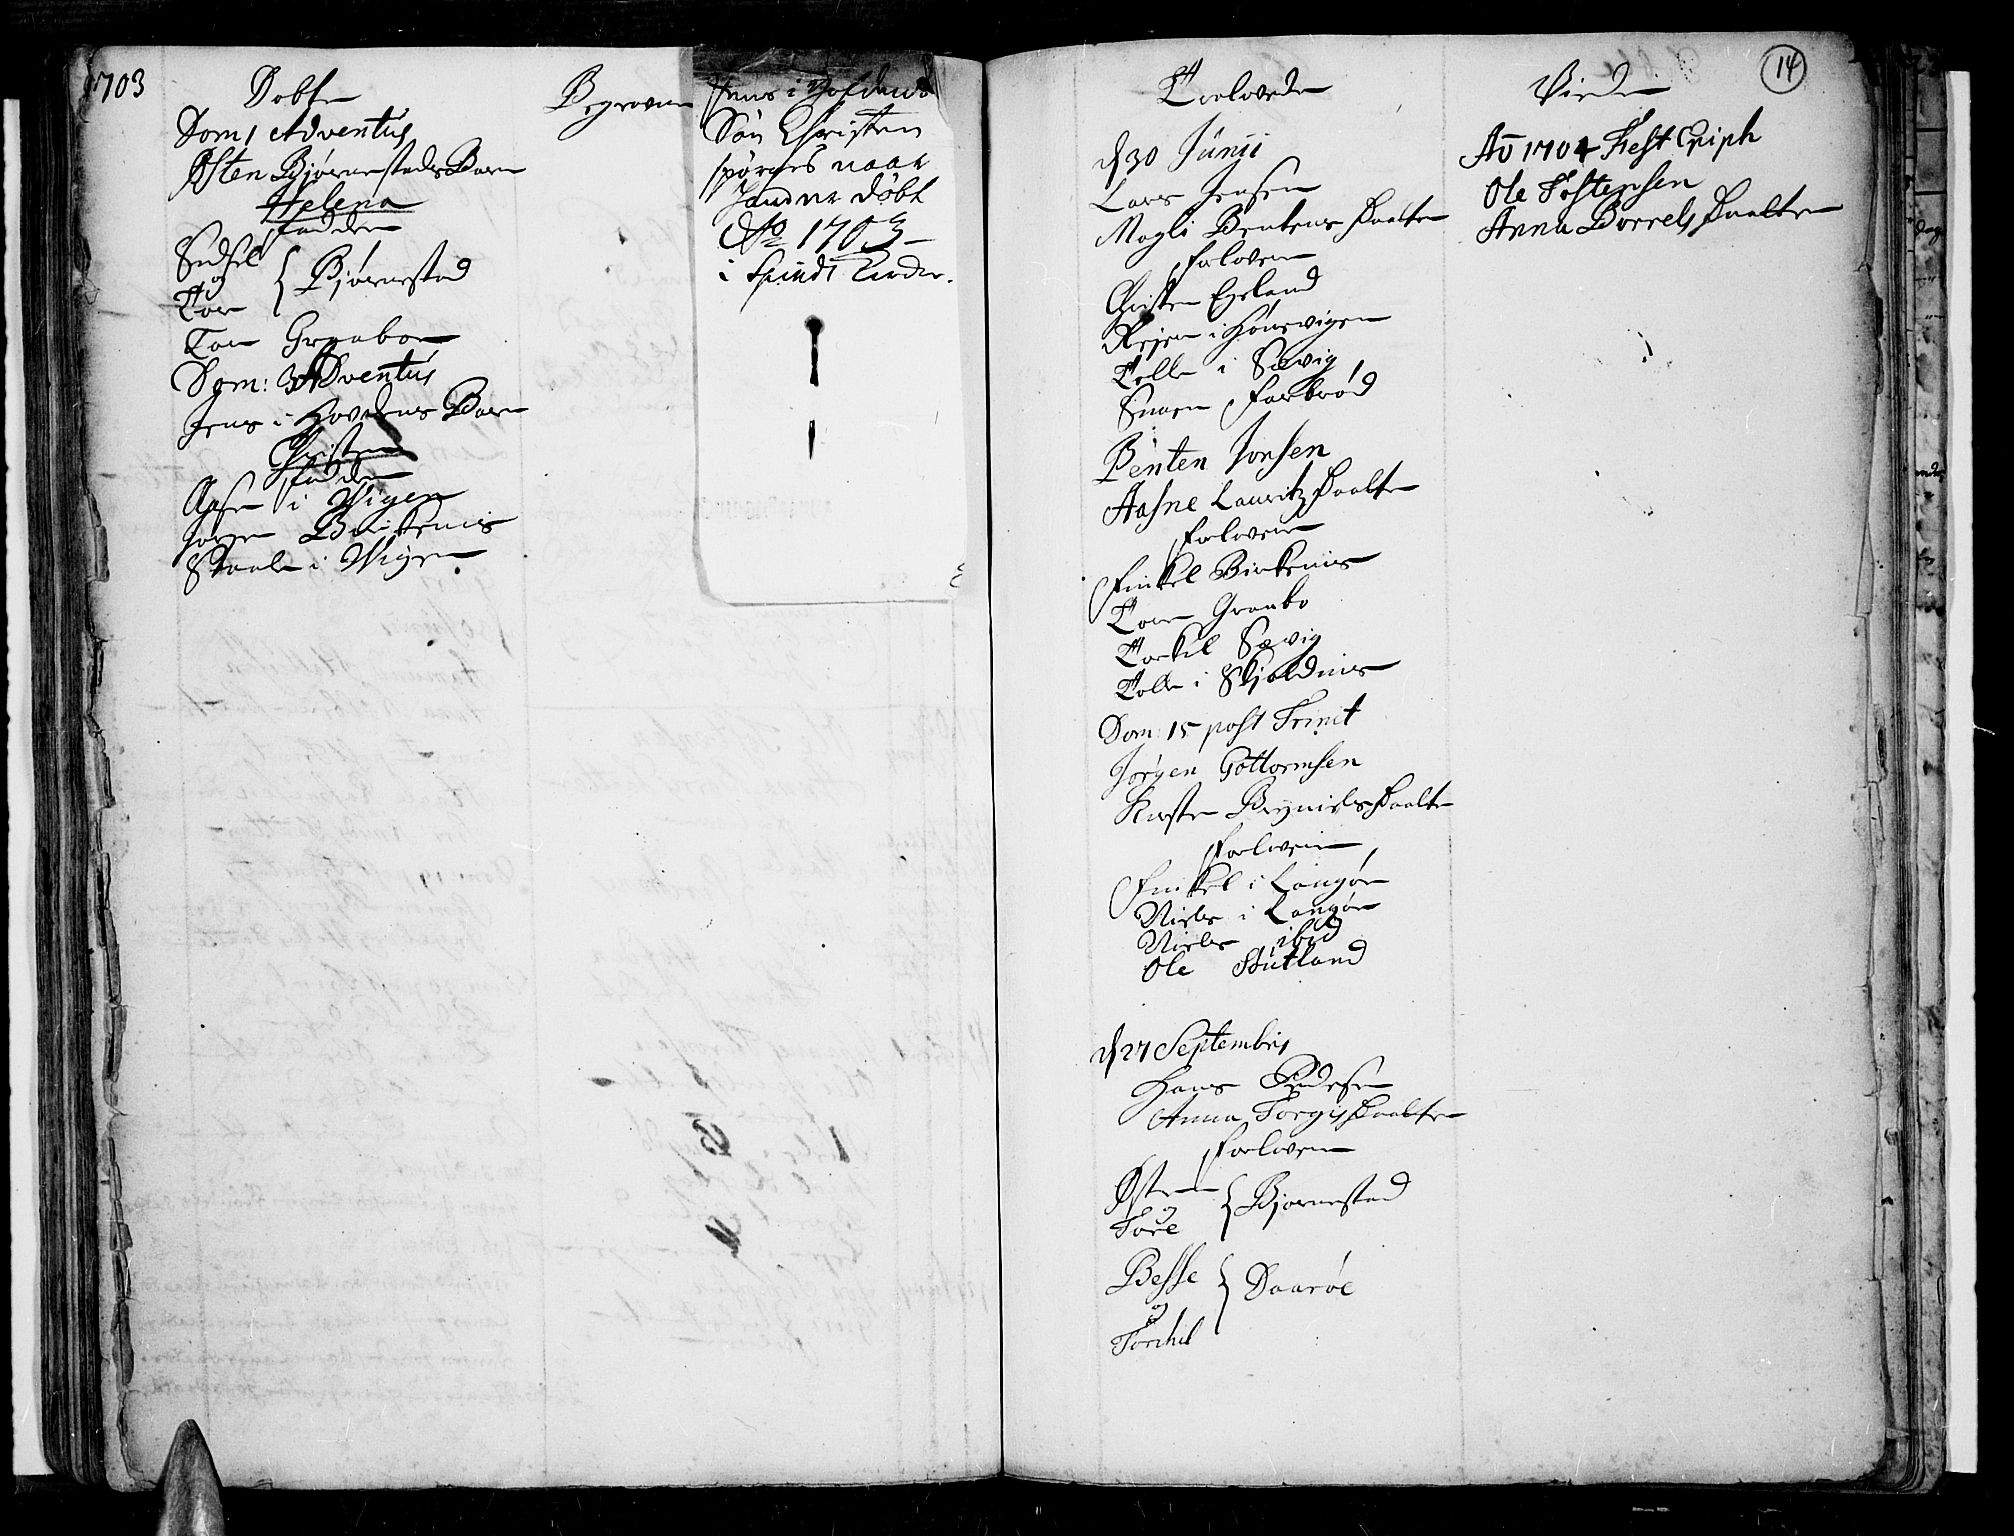 1703
Døbte
Dom 1 Adventus
Østen Bjørnestads Barn
Helena
fadder
Sidsel
og
Tor
Bjørnestad
Tor Grønboe
Dom: 3 Adventus
Jens i Hovdens Barn
Christen
fadder
Aasen i Wigen
Jørgen Birkenis
Staale i Wigen
Begravne
Jens i Hofdens
Søn Christen
spørges naar
hand er døbt
Ao 1703
i Spinds Kircke.
14
Trolovede
d 30 Junii
Lars Jensen
Magli Bentens Daatter
forlovere
Christen Egeland
Rejer i Hønsvigen
Tolle i Sævig
Simen Farbrød
Benten Jonsen
Aasne Lauritz Daatter
forlovere
Finkel Birkenis
Tore Grønbo
Torkil Sævig
Tolle i Skjoldnis
Dom: 15 post Trinit
Jørgen Gottormsen
Kirsten Brynilds Daatter
forlovere
Finkel i Langøen
Niels i Langøen
Niels ibid
Ole Stutland
d 27 Septembris
Hans Pedersen
Anna Torgis Daatter
forlovere
Østen
og
Tore
Bjørnestad
Besse
og
Torchel
Daarøe
Viede
Ao 1704 Fest Epiph
Ole Tostensen
Anna Borrels Daatter